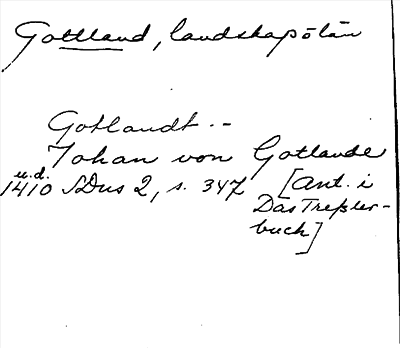 Gottland, landskap o län
Gotlandt.-
Johan von Gotlande
u.d.
1410 SDns 2, s. 347 [Ant. i
Das Treßler-
buch]